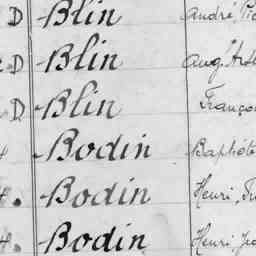 D Blin André
D Blin Aug.
D Blin
Bodin Baptiste
H. Bodin Henri,
H. Bodin Henri,